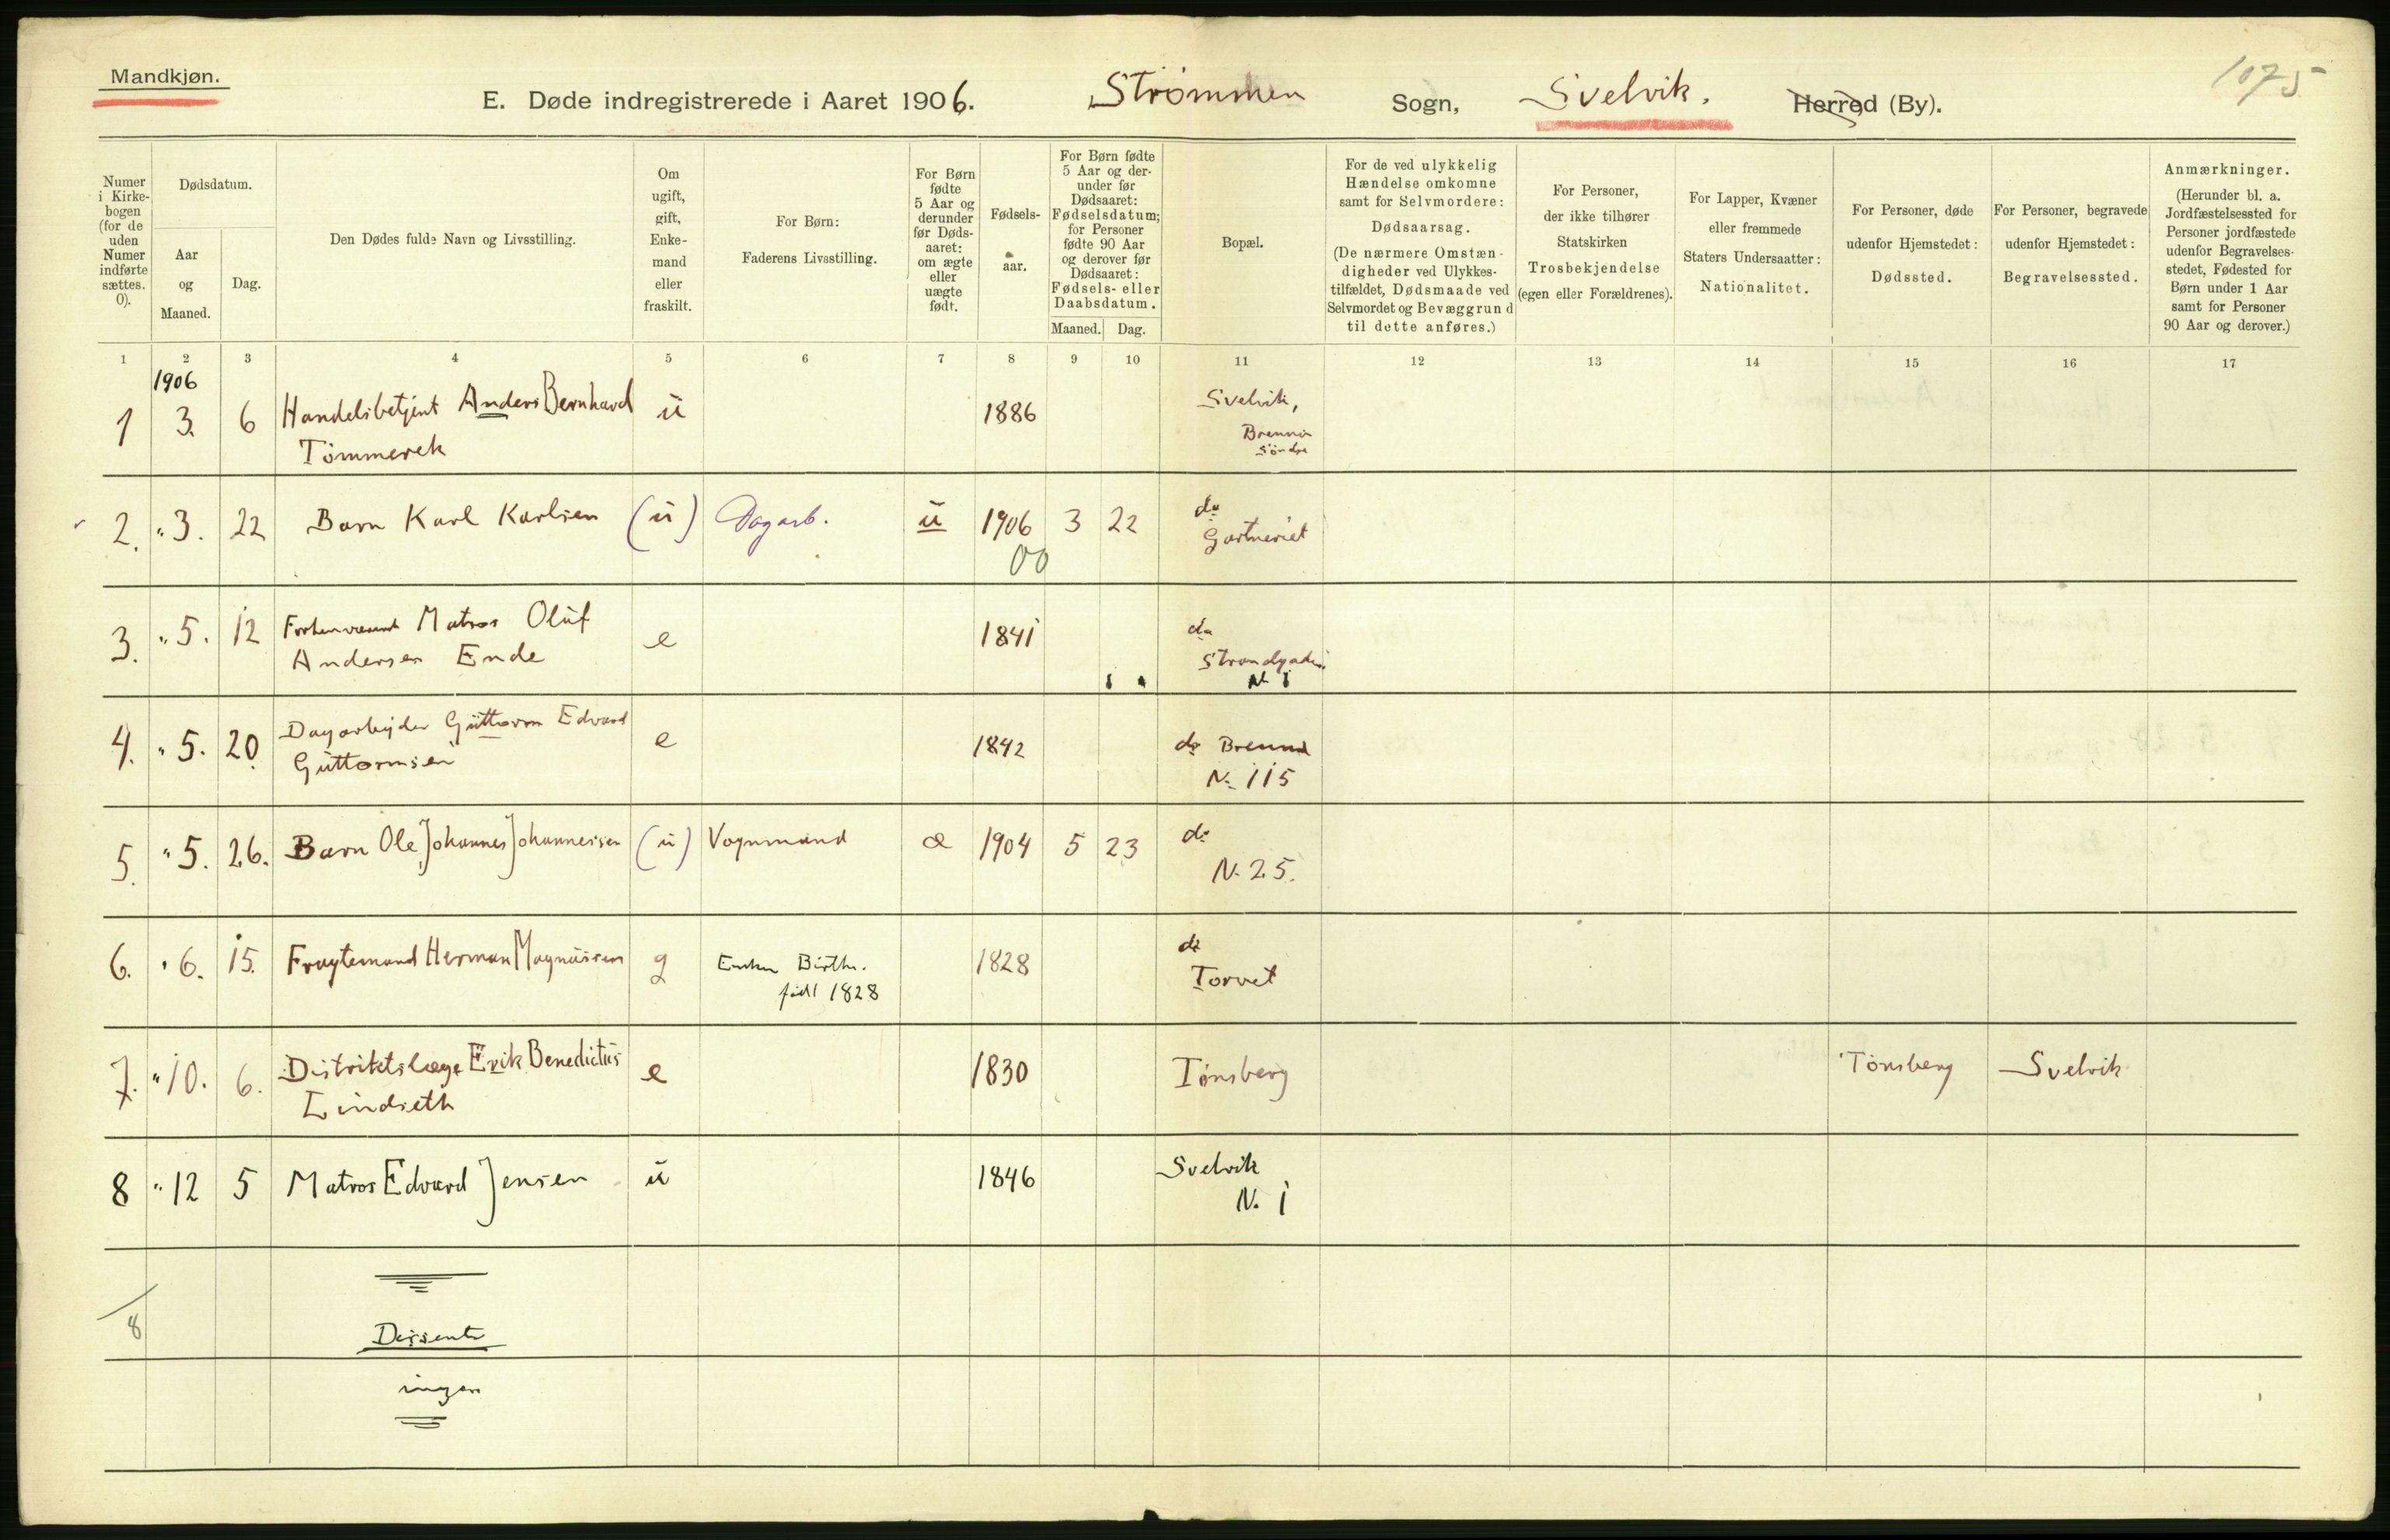 Mandkjøn.
E. Døde indregistrerede i Aaret 1906. Strømmen Sogn, Svelvik. Herred (By).
1075
Numer i Kirkebogen (for de uden Numer indførte sættes. 0).
Dødsdatum.
Aar og Maaned.
Dag.
Den Dødes fulde Navn og Livsstilling.
Om ugift, gift, Enkemand eller fraskilt.
For Børn:
Faderens Livsstilling.
For Børn fødte 5 Aar og derunder før Dødsaaret: om ægte eller uægte født.
Fødselsaar.
For Børn fødte 5 Aar og derunder før Dødsaaret: Fødselsdatum; for Personer fødte 90 Aar og derover før Dødsaaret: Fødsels- eller Daabsdatum.
Maaned. Dag.
Bopæl.
For de ved ulykkelig Hændelse omkomne samt for Selvmordere:
Dødsaarsag.
(De nærmere Omstændigheder ved Ulykkestilfældet, Dødsmaade ved Selvmordet og Bevæggrund til dette anføres.)
For Personer, der ikke tilhører Statskirken
Trosbekjendelse
(egen eller Forældrenes).
For Lapper, Kvæner eller fremmede Staters Undersaatter:
Nationalitet.
For Personer, døde udenfor Hjemstedet:
Dødssted.
For Personer, begravede udenfor Hjemstedet:
Begravelsessted.
Anmærkninger.
(Herunder bl. a. Jordfæstelsessted for Personer jordfæstede udenfor Begravelsesstedet, Fødested for Børn under 1 Aar samt for Personer 90 Aar og derover.)
1 2 3 4 5 6 7 8 9 10 11 12 13 14 15 16 17
1906
1 3. 6 Handelsbetjent Anders Bernhard ŭ 1886 Svelvik,
Tömmerek Brenna
Söndre
2. " 3. 22 Barn Karl Karlsen (ŭ) Dagarb. ŭ 1906 3 22 do
00 Gartneriet
3. " 5. 12 Forhenværend Matros Oluf e 1841 do
Andersen Ende Strandgaden
N. 1
4. " 5. 20. Dagarbejder Guttorm Edvard e 1842 do Brenna
Guttormsen N. 115
5. " 5. 26. Barn Ole Johannes Johannessen (ŭ) Vognmand æ 1904 5 23 do
N. 25.
6. " 6. 15. Fragtemand Herman Magnussen g Enken Birthe. 1828 do
född 1828 Torvet
7. " 10. 6. Distriktslæge Erik Benedictus e 1830 Tönsberg Tönsberg Svelvik
Lindseth
8 " 12 5 Matros Edvard Jensen ŭ 1846 Svelvik
N. 1
8
Dissente
ingen